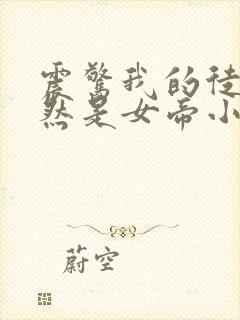 震惊我的徒
然是女帝小
蔚空